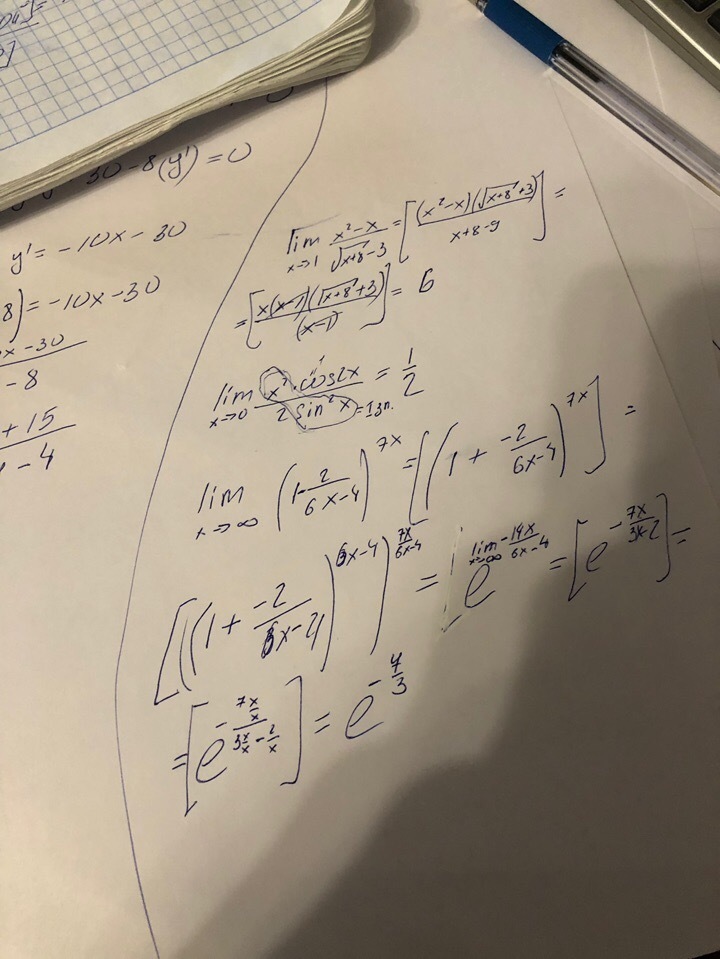 30-8(y')=0
y'=-10x-30
8)=-10x-30
x-30
-8
+15
-4
lim x→1 (x²-x)/(√(x+8)-3) = [(x²-x)(√(x+8)+3)/(x+8-9)] =
= [x(x-1)(√(x+8)+3)/(x-1)] = 6
lim x→0 (x²·cos2x)/(2sin²x) = 1/2
1
=1зп.
lim x→∞ (1-2/(6x-4))^(7x) = [(1+(-2)/(6x-4))^(7x)] =
[((1+(-2)/(6x-4))^(6x-4))^(7x/(6x-4))] = [e^(lim x→∞ -14x/(6x-4)) = [e^(-7x/(3x-2))] =
= [e^(-(7x/x)/(3x/x-2/x))] = e^(-7/3)